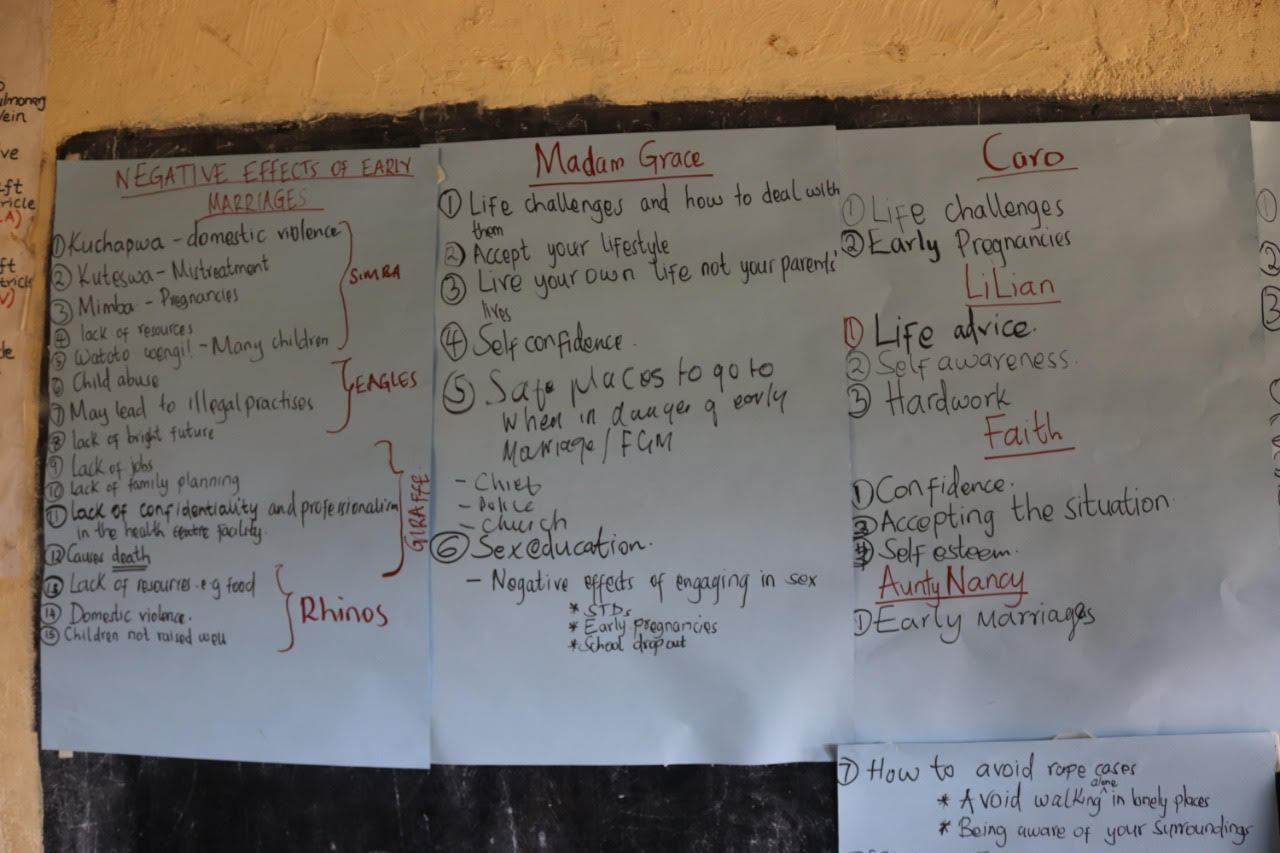 ulmonary
Vein
ve
ft
ricle
A)
ft
tricle
V)
NEGATIVE EFFECTS OF EARLY
MARRIAGES
① Kuchapwa - domestic violence
② Kuteswa - Mistreatment
③ Mimba - Pregnancies
④ lack of resources
⑤ Watoto wengi! - Many children
SIMBA
⑥ Child abuse
⑦ May lead to illegal practises
⑧ lack of bright future
EAGLES
⑨ Lack of jobs
⑩ Lack of family planning
⑪ Lack of confidentiality and professionalism
in the health centre facility.
⑫ Causes death
GIRAFFE
⑬ Lack of resources e.g food
⑭ Domestic violence.
⑮ Children not raised well
Rhinos
Madam Grace
① Life challenges and how to deal with
them
② Accept your lifestyle
③ Live your own life not your parents'
lives
④ Self confidence.
⑤ Safe places to go to
when in danger of early
Marriage/FGM
- Chief
- Police
- Church
⑥ Sex education.
- Negative effects of engaging in sex
* STDs
* Early pregnancies
* School drop out
Caro
① Life challenges
② Early Pregnancies
LiLian
① Life advice.
② Self awareness.
③ Hardwork
Faith
① Confidence.
③ Accepting the situation
④ Self esteem.
Aunty Nancy
① Early Marriages
⑦ How to avoid rape cases
* Avoid walking alone in lonely places
* Being aware of your surroundings
①
②
③